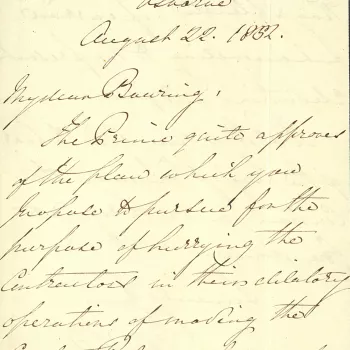 Osborne
August 22. 1852.
My dear Bowring,
The Prince quite approves
of the plan which you
propose to pursue for the
purpose of hurrying the
Contractors in their dilatory
operations of moving the